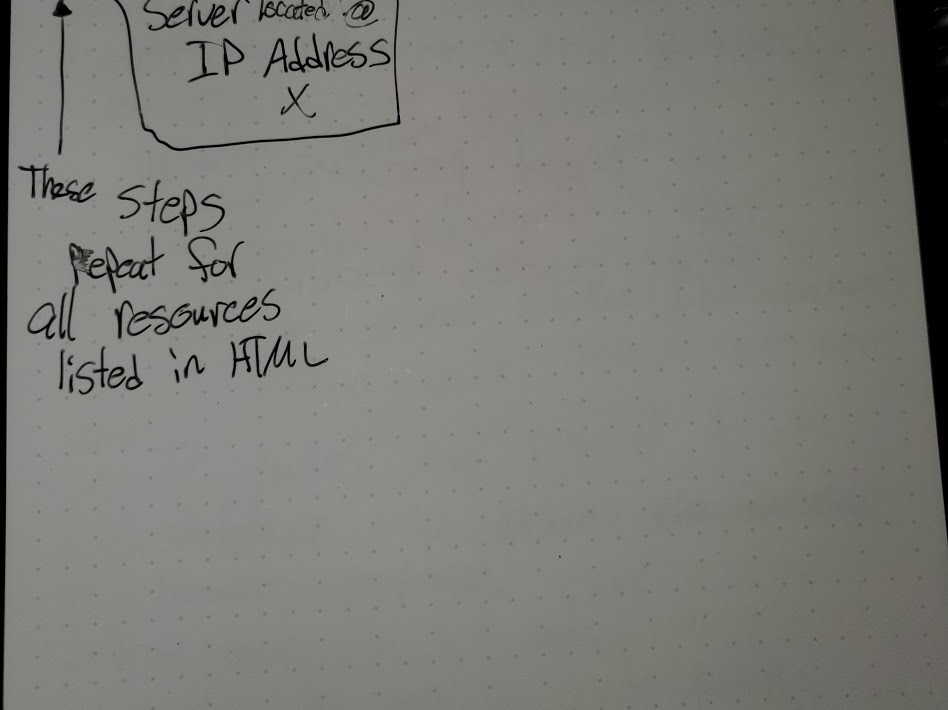 Server located @
IP Address
X
These steps
Repeat for
all resources
listed in HTML